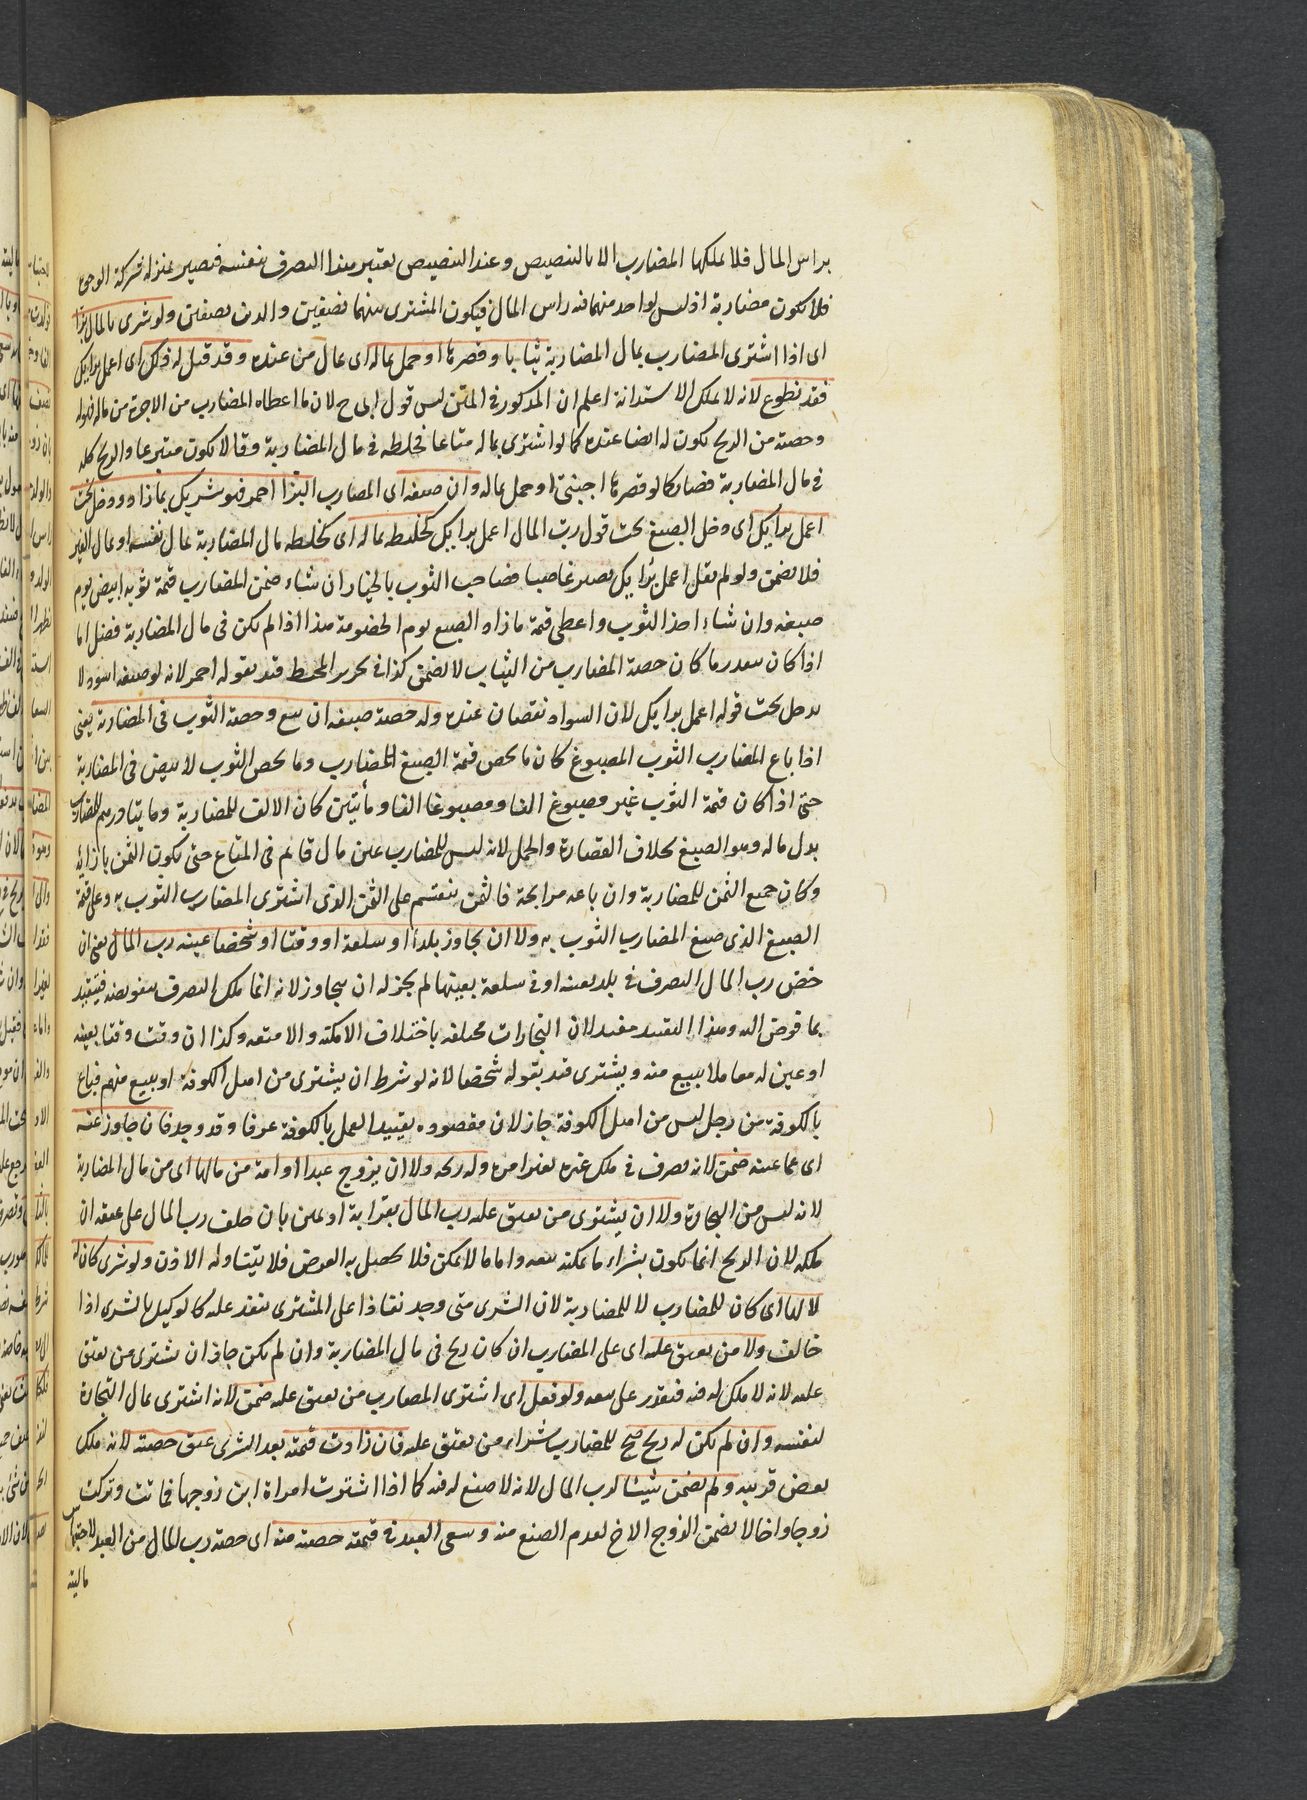 براس المال فلا يملكها المضارب الا بالتنصيص وعند التنصيص يعتبر هذا التصرف بنفسه فيصير بمنزلة شركة الوجوه
فلا تكون مضاربة اذ ليس لواحد منهما فيه راس المال فيكون المشترى بينهما نصفين والدين نصفين ولو شرى بالمال بزا
اى اذا اشترى المضارب بمال المضاربة ثيابا وقصرها او حمل بماله اى بمال من عنده وقد قيل له ذلك اى اعمل برايك
فقد تطوع لانه لا يملك الاستدانة اعلم ان المذكور في المتن ليس قول ابى ح لان ما اعطاه المضارب من الاجرة من ماله فهو له
وحصته من الربح تكون له ايضا عنده كما لو اشترى بماله متاعا فخلطه فى مال المضاربة وقالا يكون متبرعا والربح كله
فى مال المضاربة فصار كما لو قصرها اجنبى او حمل بماله وان صبغه اى المضارب البز احمر فهو شريك بما زاد ودخل تحت
اعمل برايك اى دخل الصبغ تحت قول رب المال اعمل برايك كخلطه بماله اى كخلطه مال المضاربة بمال نفسه او بمال الغير
فلا يضمن ولو لم يقل اعمل برايك يصير غاصبا فصاحب الثوب بالخيار ان شاء ضمن المضارب قيمة ثوبه ابيض يوم
صبغه وان شاء اخذ الثوب واعطى قيمة ما زاد الصبغ يوم الخصومة هذا اذا لم يكن فى مال المضاربة فضل اما
اذا كان بقدر ما كان حصة المضارب من الثياب لا يضمن كذا فى تحرير المحيط قيد بقوله احمر لانه لو صبغه اسود لا
يدخل تحت قوله اعمل برايك لان السواد نقصان عنده وله حصة صبغه ان بيع وحصة الثوب فى المضاربة يعنى
اذا باع المضارب الثوب المصبوغ كان ما يخص قيمة الصبغ للمضارب وما يخص الثوب الابيض فى المضاربة
حتى اذا كان قيمة الثوب غير مصبوغ الفا ومصبوغا الفا ومأيتين كان الالف للمضاربة ومايتا درهم للمضارب
بدل ماله وهو الصبغ بخلاف القصارة والحمل لانه ليس للمضارب عين مال قائم فى المتاع حتى يكون الثمن بازايه
وكان جميع الثمن للمضاربة وان باعه مرابحة فالثمن ينقسم على الثمن الذى اشترى المضارب الثوب به وعلى قيمة
الصبغ الذى صبغ المضارب الثوب به ولا ان يجاوز بلدا او سلعة او وقتا او شخصا عينه رب المال يعنى ان
خص رب المال التصرف فى بلد بعينه او فى سلعة بعينها لم يجز له ان يتجاوز لانه انما ملك التصرف بتفويضه فيتقيد
بما فوض اليه وهذا التقييد مفيد لان التجارات مختلفة باختلاف الامكنة والامتعة وكذا ان وقت وقتا بعينه
او عين له معاملا يبيع منه ويشترى قيد بقوله شخصا لانه لو شرط ان يشترى من اهل الكوفة او يبيع منهم فباع
بالكوفة من رجل ليس من اهل الكوفة جاز لان مقصوده تقييد العمل بالكوفة عرفا وقد وجد فان جاوز عنه
اى عما عينه ضمن لانه تصرف فى ملك غيره بغير امره وله ربحه ولا ان يزوج عبدا او امة من مالها اى من مال المضاربة
لانه ليس من التجارة ولا ان يشترى من يعتق على رب المال بقرابة او يمين بان حلف رب المال على عتقه ان
ملكه لان الربح انما يكون بشراء ما يمكنه بيعه واما ما لا يمكن فلا يحصل به العوض فلا يتناوله الاذن ولو شرى كان له
لا لها اى كان للمضارب لا للمضاربة لان الشرى متى وجد نفاذا على المشترى ينفذ عليه كالوكيل بالشرى اذا
خالف ولا من يعتق عليه اى على المضارب ان كان ربح فى مال المضاربة وان لم يكن جاز ان يشترى من يعتق
عليه لانه لا ملك له فيه فيقدر على بيعه ولو فعل اى اشترى المضارب من يعتق عليه ضمن لانه اشترى بمال التجارة
لنفسه وان لم يكن له ربح صح للمضارب شراء من يعتق عليه فان زادت قيمته بعد الشرى عتق حصته لانه ملك
بعض قريبه ولم يضمن شيئا لرب المال لانه لا صنع له فيه كما اذا اشترت امراة ابن زوجها فماتت وتركت
زوجا واخا لا يضمن الزوج الاخ لعدم الصنع منه وسعى العبد فى قيمة حصته منه اى حصة رب المال من العبد لاحتباس
ماليته